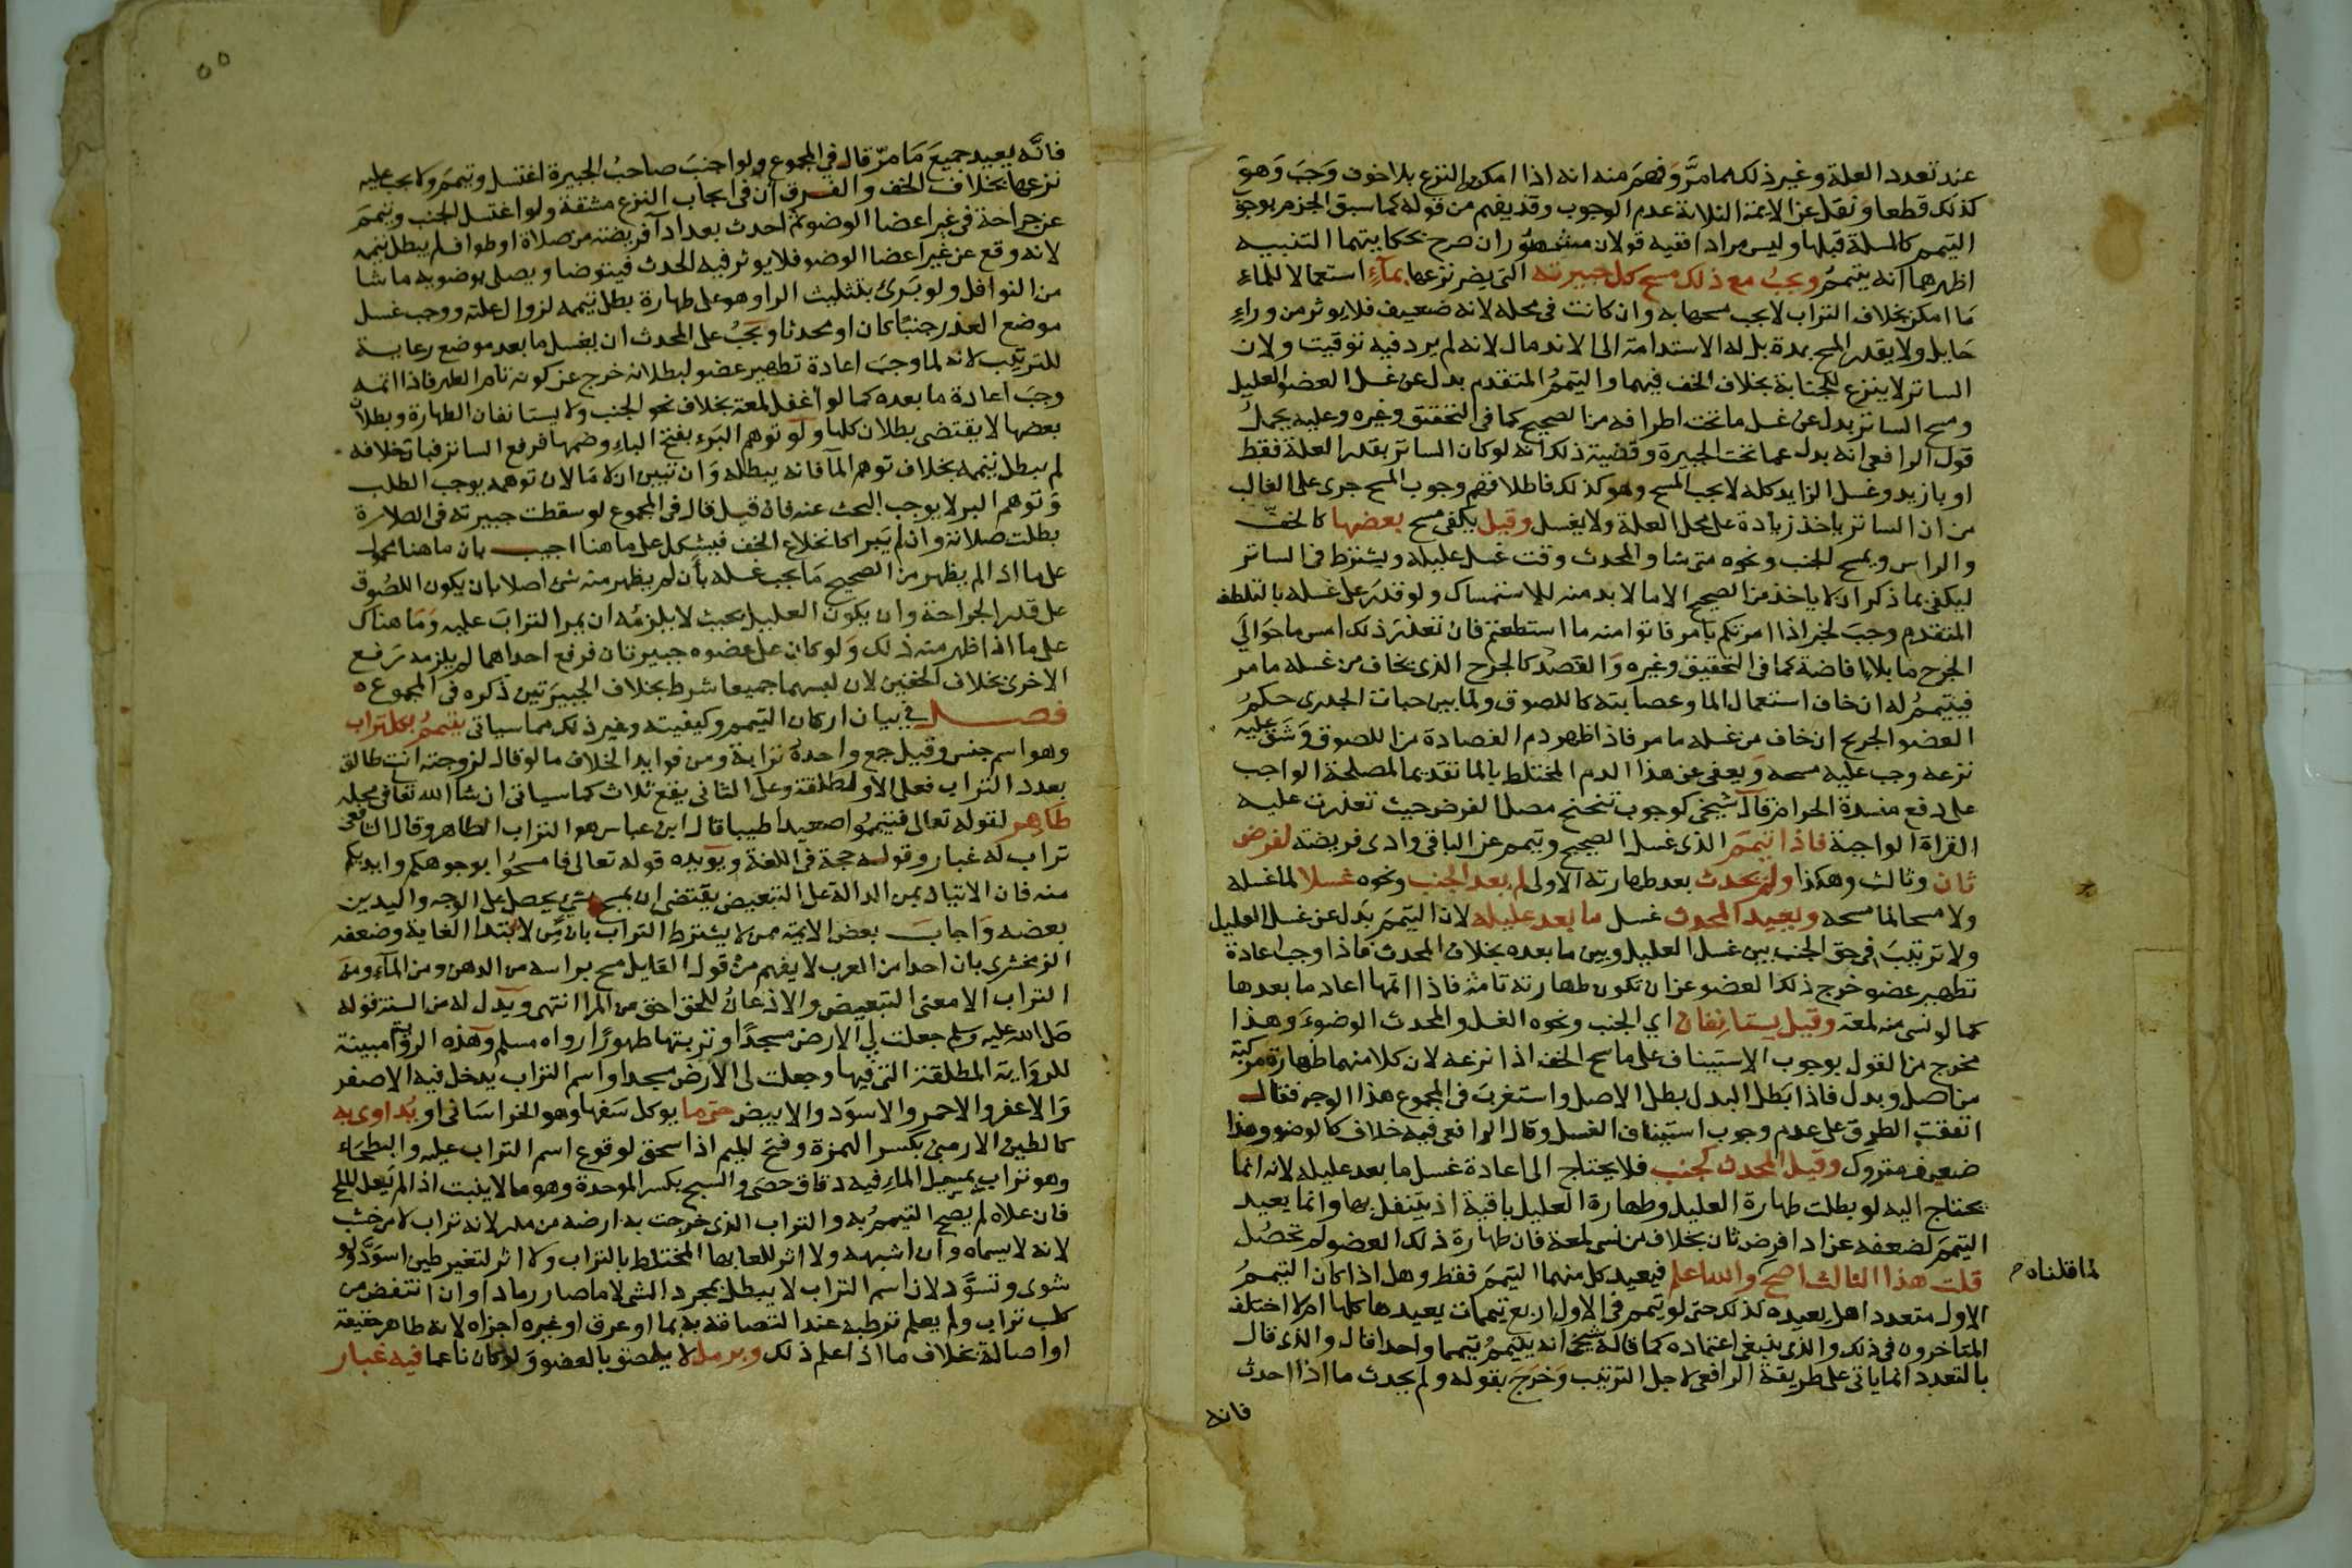 عند تعدد العلة وغير ذلك مما مرَّ وفهمَ منه انه اذا امكن النزع بلا خوف وَجَبَ وَهوَ
كذلك قطعا ونقل عن الائمة الثلاثة عدم الوجوب وقد يفهم من قوله كما سبق الجزم بوجوب
التيمم كالمسلة قبلها وليس مرادا ففيه قولان مشهوران صرح بحكايتهما التنبيه
اظهرهما انه يتيممُ ويجبُ مع ذلك مسح كل جبيرته التي يضر نزعها بمآءٍ استعمالا للماءِ
مَا امكن بخلاف التراب لا يجب مسحها به وان كانت في محله لانه ضعيف فلا يوثر من وراءِ
حَايل ولا يقدر المسح بمدة بل له الاستدامة الى الاندمال لانه لم يرد فيه توقيت ولان
الساتر لا ينزع للجنابة بخلاف الخف فيهما والتيممُ المتقدم بدل عن غسل العضو العليل
ومسح الساتر بدل عن غسل ما تحت اطرافه من الصحيح كما في التحقيق وغيره وعليه يحملُ
قول الرافعي انه بدل عما تحت الجبيرة وقضية ذلك انه لو كان الساتر بقدر العلة فقط
او بازيد وغسل الزايد كله لا يجب المسح وهو كذلك فاطلاقهم وجوب المسح جرى على الغالب
من ان الساتر ياخذ زيادة على محل العلة ولا يغسل وقيل يكفي مسح بعضها كالخفّ
والراس ويمسح الجنب ونحوه متى شا والمحدث وقت غسل عليله ويشترط في الساتر
ليكفي بما ذكر ان لا ياخذ من الصحيح الا ما لا بد منه للاستمساك ولو قدرَ على غسله بالتلطف
المتقدم وجبَ لخبر اذا امرتكم بامر فاتوا منه ما استطعتم فان تعذرَ ذلك امس ما حوالي
الجرح ما بلا افاضة كما في التحقيق وغيره وَالفصد كالجرح الذي يخاف من غسله ما مر
فيتيممُ له ان خاف استعمال الما وعصابته كاللصوق ولما بين حبات الجدري حكمُ
العضو الجريح ان خاف من غسله ما مر فاذا ظهر دم الفصادة من اللصوق وَشَق عليه
نزعه وجب عليه مسحه وَيعفى عن هذا الدم المختلط بالما تقديما لمصلحة الواجب
على دفع مفسدة الحرام قال شيخي كوجوب تنحنح مصلى الفرض حيث تعذرت عليه
القراة الواجبة فاذا تيممَ الذي غسل الصحيح وتيمم عن الباقي وادى فريضته لفرض
ثان وثالث وهكذا ولم يحدث بعد طهارته الاولى لم يعد الجنب ونحوه غسلا لما غسله
ولا مسحا لما مسحه ويعيد المحدث غسل ما بعد عليله لان التيممَ بَدل عن غسل العليل
ولا ترتيبَ في حق الجنب بين غسل العليل وبين ما بعده بخلاف المحدث فاذا وجب اعادة
تطهير عضو خرج ذلك العضو عن ان تكون طهارته تامة فاذا اتمها اعاد ما بعدها
كما لو نسي منه لمعة وقيل يستانفان اي الجنب ونحوه الغسل والمحدث الوضوءَ وهذا
مخرج من القول بوجوب الاستيناف على ماسح الخف اذا نزعه لان كلا منهما طهارة مركبة
من اصل وبدل فاذا بَطل البدل بطل الاصل واستغربَ في المجموع هذا الوجه فقال
اتفقت الطرق على عدم وجوب استيناف الغسل وقال الرافعي فيه خلاف كالوضو وهذا
ضعيف متروك وقيل المحدث كجنب فلا يحتاج الى اعادة غسل ما بعد عليله لانه انما
يحتاج اليه لو بطلت طهارة العليل وطهارة العليل باقية اذ يتنفل بها وانما يعيد
التيممَ لضعفه عن ادا فرض ثان بخلاف من نسي لمعة فان طهارة ذلك العضو لم تحصُل
قلت هذا الثالث اصح والله اعلم فيعيد كل منهما التيممَ فقط وهل اذا كان التيممُ
لما قلناه
الاول متعددا هل يعيده كذلك حتى لو تيمم في الاول اربع تيممات يعيدها كلها ام لا اختلف
المتاخرون في ذلك والذي ينبغي اعتماده كما قاله شيخي انه يتيممُ تيمما واحدا قال والذي قال
بالتعدد انما ياتي على طريقة الرافعي لاجل الترتيب وَخرَج بقوله ولم يحدث ما اذا احدث
فانه
٥٥
فانَّه يعيد جميعَ مَا مرّ قال في المجموع ولو اجنبَ صاحبُ الجبيرة اغتسل وتيممَ ولا يجب عليه
نزعها بخلاف الخف والفرق ان في ايجاب النزع مشقة ولو اغتسل الجنب وتيممَ
عن جراحة في غير اعضا الوضو ثم احدث بعد ادآ فريضته من صلاة او طواف لم يبطل تيممه
لانه وقع عن غير اعضا الوضو فلا يوثر فيه الحدث فيتوضا ويصلى بوضويه ما شا
من النوافل ولو بَرئ بتثليث الرا وهو على طهارة بطل تيممه لزوال علته ووجب غسل
موضع العذر جنبًا كان او محدثا ويَجبُ على المحدث ان يغسل ما بعد موضع رعاية
للترتيب لانه لما وجبَ اعادة تطهير عضو لبطلانه خرج عن كونه تام الطهر فاذا اتمه
وجبَ اعادة ما بعده كما لو اغفل لمعة بخلاف نحو الجنب ولا يستانفان الطهارة وبطلان
بعضها لا يقتضى بطلان كلها ولو توهم البَرء بفتح الباءِ وضمها فرفع الساتر فبان خلافه
لم يبطل تيممه بخلاف توهم المآ فانه يبطله وَان تبين ان لا مَا لان توهمه يوجب الطلب
وَتوهم البر لا يوجب البحث عنه فان قيل قال في المجموع لو سقطت جبيرته في الصلاة
بطلت صلاته وان لم يَبرا كانخلاع الخف فيشكل على ما هنا اجيب بان ما هنا محمول
على ما اذا لم يظهر من الصحيح مَا يجب غسله بأن لم يظهر منه شي اصلا بان يكون اللصُوق
على قدر الجراحة وان يكون العليل بحيث لا يلزمُه ان يمر الترابَ عليه وَمَا هناك
على ما اذا ظهر منه ذلك وَلو كان على عضوه جبيرتان فرفع احداهما لم يلزمه رَفع
الاخرى بخلاف الخفين لان لبسهما جميعا شرط بخلاف الجبيرَتين ذكره في المجموع ه
فصل في بيان اركان التيمم وكيفيته وغير ذلك مما سياتي يتيممُ بكل تراب
وهو اسم جنس وقيل جمع واحدهُ ترابة ومن فوايد الخلاف ما لو قال لزوجته انت طالق
بعدد التراب فعلى الاول طلقة وعلى الثاني يقع ثلاث كما سياتى ان شا الله تعا في محله
طَاهر لقوله تعالى فتيممُوا صعيدا طيبا قال ابن عباس هو التراب الطاهر وقال الشافعي
تراب له غبار وقوله حجة في اللغة ويَويده قوله تعالى فامسحُوا بوجوهكم وايديكم
منه فان الاتيان بمن الدالة على التبعيض يقتضى ان يمسح بشي يحصل على الوجه واليدين
بعضه وَاجابَ بعض الائمة ممن لا يشترط التراب بان مِن لابتدا الغاية وضعفه
الزمخشرى بان احدا من العرب لا يفهم منْ قول القايل مسح براسه من الدهن ومن المآء ومنَ
التراب الا معنى التبعيض والاذعانُ للحق احق من المرا انتهى ويَدل له من السنة قوله
صَلى الله عليه وسلم جعلت لي الارض مسجدًا وتربتها طهورًا رواه مسلم وَهذه الرواية مبينة
للروَاية المطلقة التي فيها وجعلت لى الارض مسجدا واسم التراب يَدخل فيه الاصفر
وَالاعفر والاحمر والاسوَد والابيض حتى ما يوكل سَفها وهو الخراسَانى او يُداوى به
كالطين الارمنى بكسر الهمزة وفتح الميم اذا سحق لوقوع اسم التراب عليه والبطحَاء
وهو تراب بمسيل الماءِ فيه دقاق حصى والسبخ بكسر الموحدة وهو ما لا ينبت اذا لم يَعل الملح
فان علاه لم يصح التيممُ به والتراب الذي خرجت به ارضه من مدر لانه تراب لا من خشب
لانه لا يسماه وان اشبهه ولا اثر للعابها المختلط بالتراب ولا اثر لتغير طين اسوَدَّ ولو
شوى وتسوَّد لان اسم التراب لا يبطل بمجرد الشي لا ما صار رمادا وان انتفض من
كلب تراب ولم يعلم ترطبه عند التصاقه به بما او عرق او غيره اجزاه لانه طاهر حقيقة
او اصالة بخلاف ما اذا علم ذلك وبرمل لا يلصق بالعضو وَلو كان ناعما فيه غبار